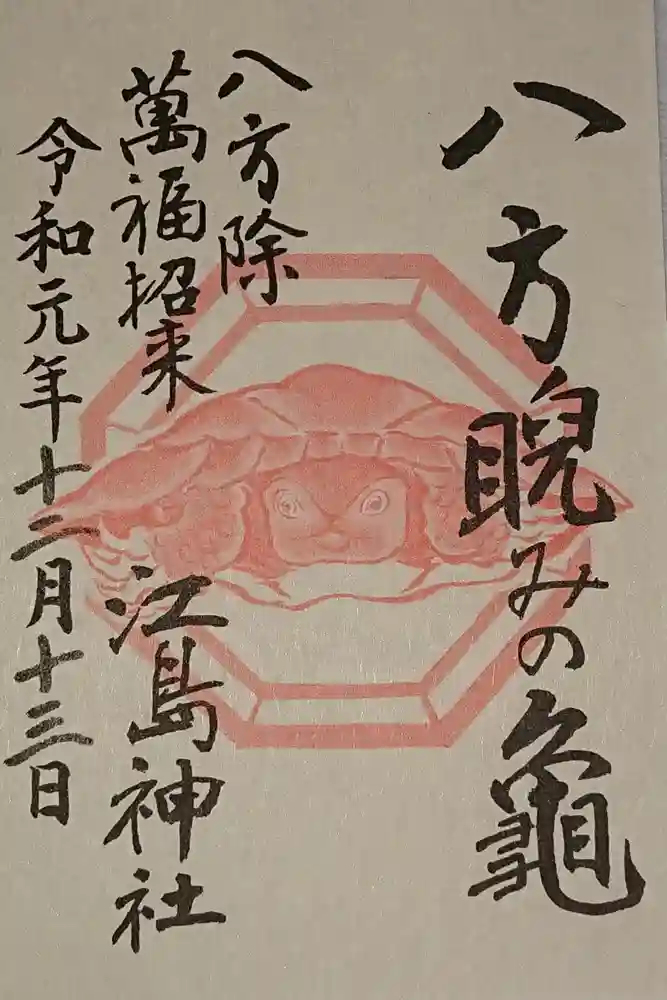 八方睨みの龜
八方除
萬福招来
江島神社
令和元年十二月十三日